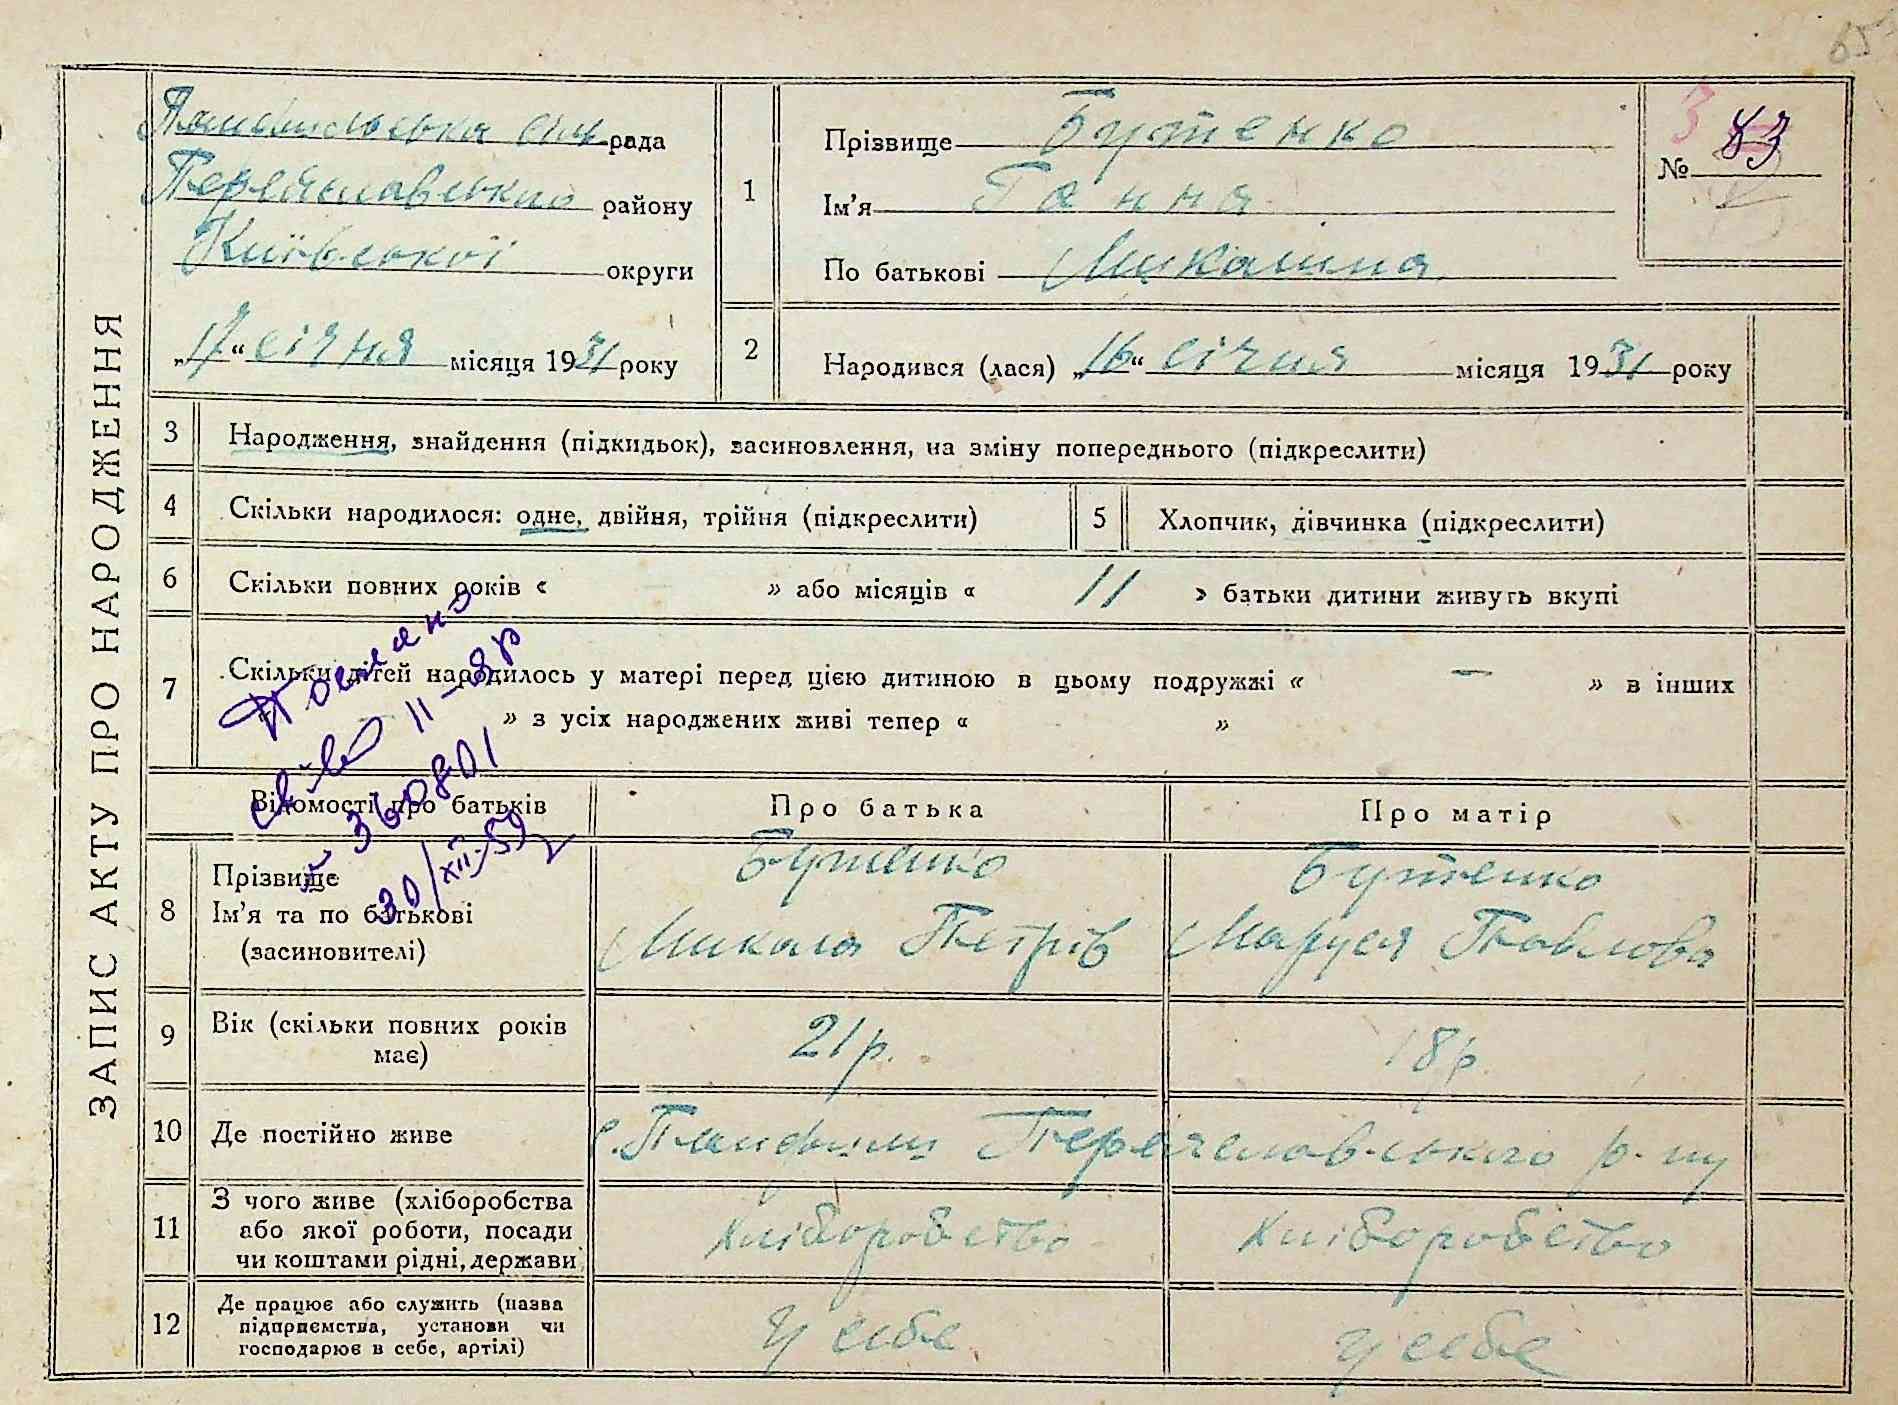 65
ЗАПИС АКТУ ПРО НАРОДЖЕННЯ
Панфильська сіл рада
Переяславського району
Київської округи
„17“ січня місяця 1931 року
1
Прізвище Бутенко
Ім’я Ганна
По батькові Миколина
3
№ 83
2
Народився (лася) „16“ січня місяця 1931 року
3 Народження, знайдення (підкидьок), засиновлення, на зміну попереднього (підкреслити)
4 Скільки народилося: одне, двійня, трійня (підкреслити)
5 Хлопчик, дівчинка (підкреслити)
6 Скільки повних років « » або місяців « 11 » батьки дитини живуть вкупі
7 Скільки дітей народилось у матері перед цією дитиною в цьому подружжі « — » в інших
» з усіх народжених живі тепер « »
II-ЯР
№ 360801
30/XII-59
Відомості про батьків Про батька Про матір
8 Прізвище Бутенко Бутенко
Ім’я та по батькові Микола Петрів Маруся Павлова
(засиновителі)
9 Вік (скільки повних років 21 р. 18 р.
має)
10 Де постійно живе с. Панфили Переяславського р-ну
11 З чого живе (хліборобства
або якої роботи, посади хліборобство хліборобство
чи коштами рідні, держави
12 Де працює або служить (назва
підприємства, установи чи у себе у себе
господарює в себе, артілі)